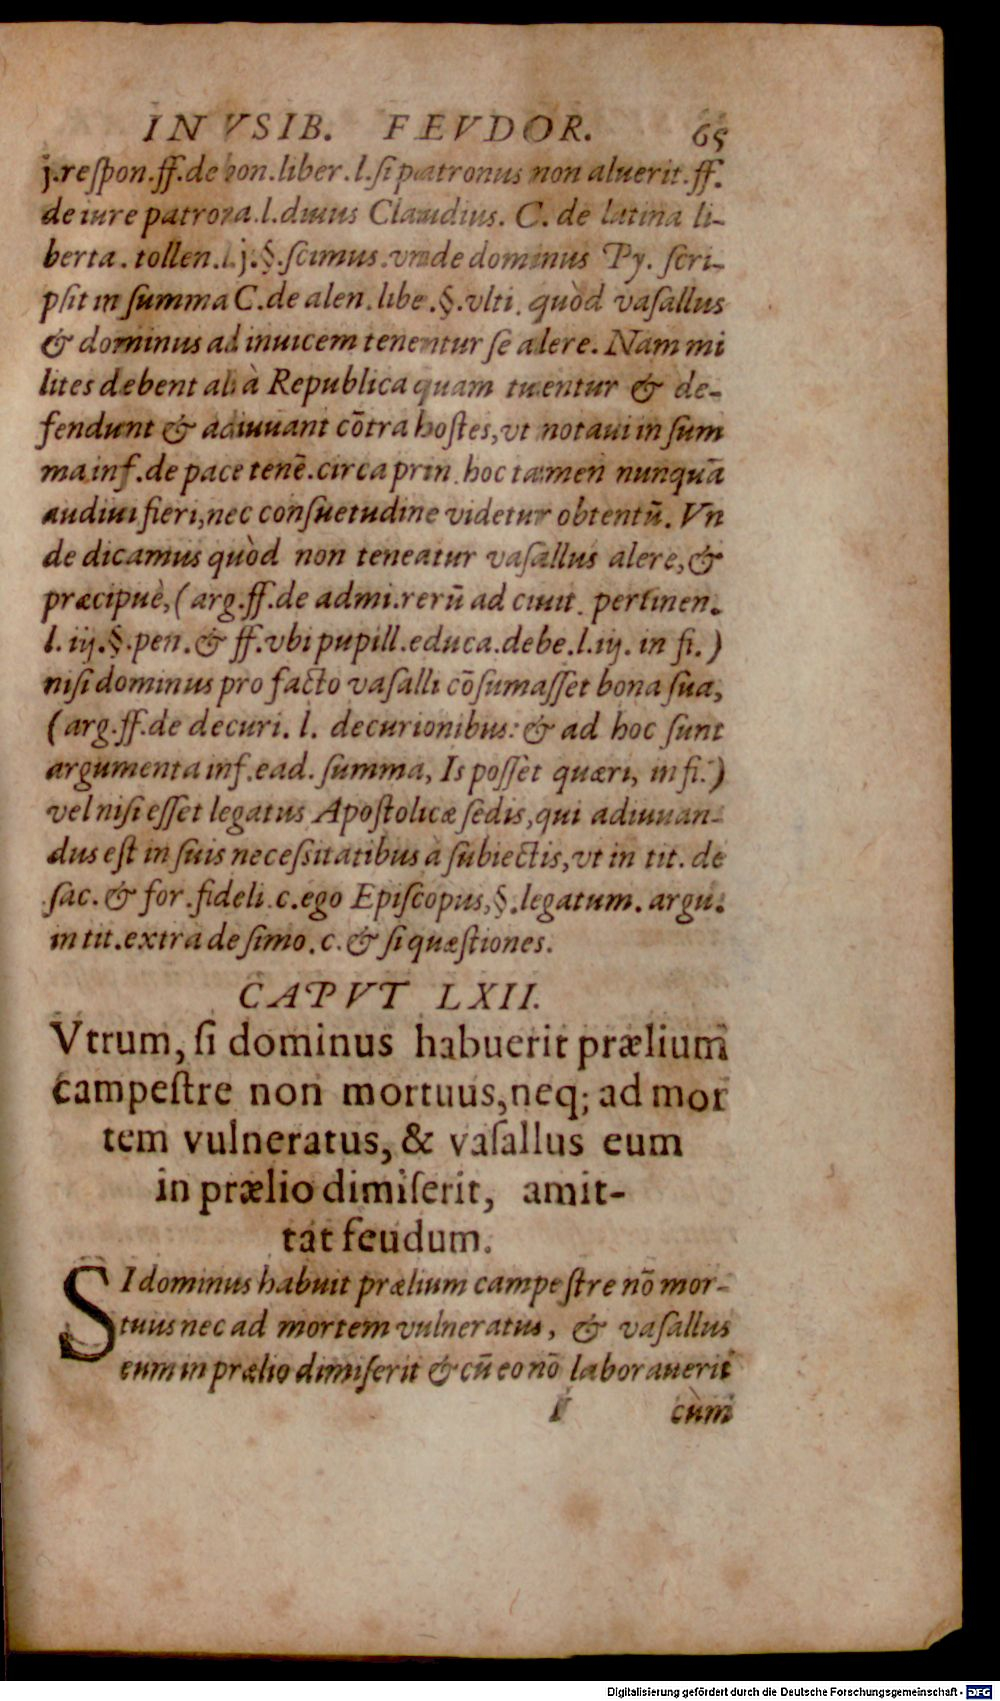 IN VSIB. FEVDOR. 65
j.respon.ff.de bon.liber.l.ſi patronus non aluerit.ff.
de iure patrona.l.diuus Claudius. C. de latina li-
berta. tollen.l.j.§.ſcimus.vnde dominus Py. ſcri-
pſit in ſumma C.de alen.libe.§.vlti. quòd vaſallus
& dominus ad inuicem tenentur ſe alere. Nam mi
lites debent ali à Republica quam tuentur & de-
fendunt & adiuuant cõtra hoſtes,vt notaui in ſum
ma inf.de pace tenẽ.circa prin.hoc tamen nunquã
audiui fieri,nec conſuetudine videtur obtentũ. Vn
de dicamus quòd non teneatur vaſallus alere,&
præcipuè,(arg.ff.de admi.rerũ ad ciuit. pertinen.
l. iij.§.pen.& ff.vbi pupill.educa.debe.l.iij. in fi.)
niſi dominus pro facto vaſalli cõſumaſſet bona ſua,
(arg.ff.de decuri. l. decurionibus: & ad hoc ſunt
argumenta inf.ead. ſumma, Is poſſet quæri, in fi.)
vel niſi eſſet legatus Apoſtolicæ ſedis,qui adiuuan-
dus eſt in ſuis neceſsitatibus à ſubiectis,vt in tit. de
ſac. & for.fideli.c.ego Epiſcopus,§.legatum. argu.
in tit.extrà de ſimo.c.& ſi quæſtiones.
CAPVT LXII.
Vtrum, ſi dominus habuerit prælium
campeſtre non mortuus,neq; ad mor
tem vulneratus, & vaſallus eum
in prælio dimiſerit, amit-
tat feudum.
SI dominus habuit prælium campeſtre nõ mor-
tuus nec ad mortem vulneratus, & vaſallus
eum in prælio dimiſerit & cũ eo nõ laborauerit
I cùm
Digitalisierung gefördert durch die Deutsche Forschungsgemeinschaft - DFG